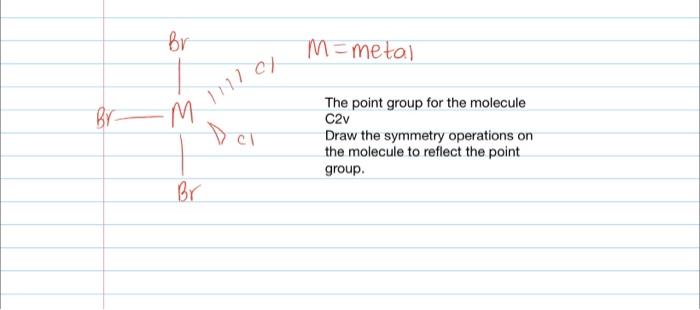 Br
M=metal
Cl
The point group for the molecule
Br M
C2v
Draw the symmetry operations on
Cl
the molecule to reflect the point
group.
Br